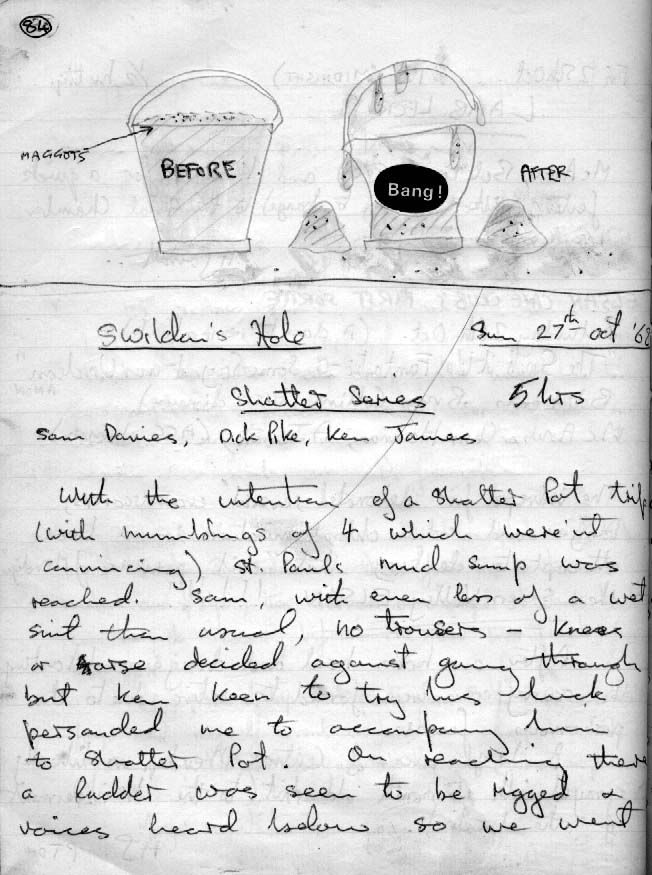 84
MAGGOTS
BEFORE
Bang!
AFTER
Swildon's Hole Sun 27th Oct '68
Shatter Series 5 hrs
Sam Davies, Dick Pike, Ken James
With the intention of a Shatter Pot trip
(with mumblings of 4 which were'nt
convincing) St. Pauls mud sump was
reached. Sam, with even less of a wet
suit than usual, no trousers - knees
or arse decided against going through
but Ken keen to try his luck
persuaded me to accompany him
to Shatter Pot. On reaching there
a ladder was seen to be rigged &
voices heard below so we went